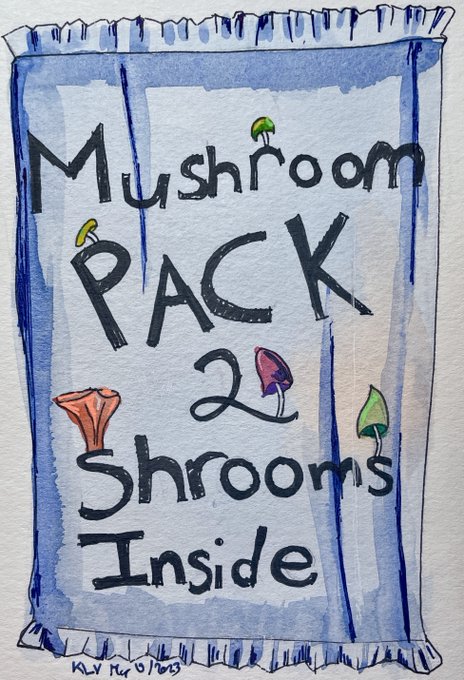 Mushroom
PACK
2
Shrooms
Inside
KLV Mar /2023